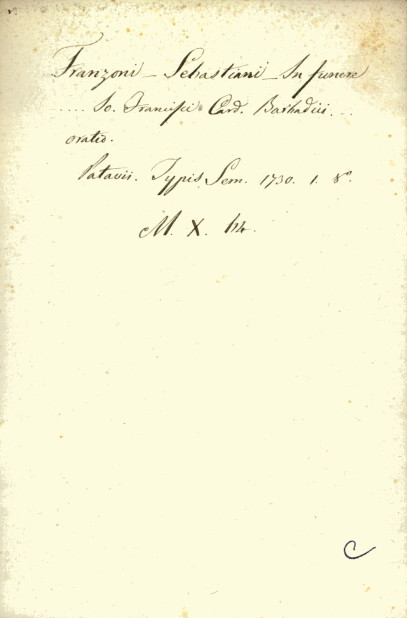 Franzoni – Sebastiani – In funere
.... Io. Francisci Card. Barbadici ...
oratio.
Patavii. Typis Sem. 1730. 1. 8°.
M. X. 64.
C